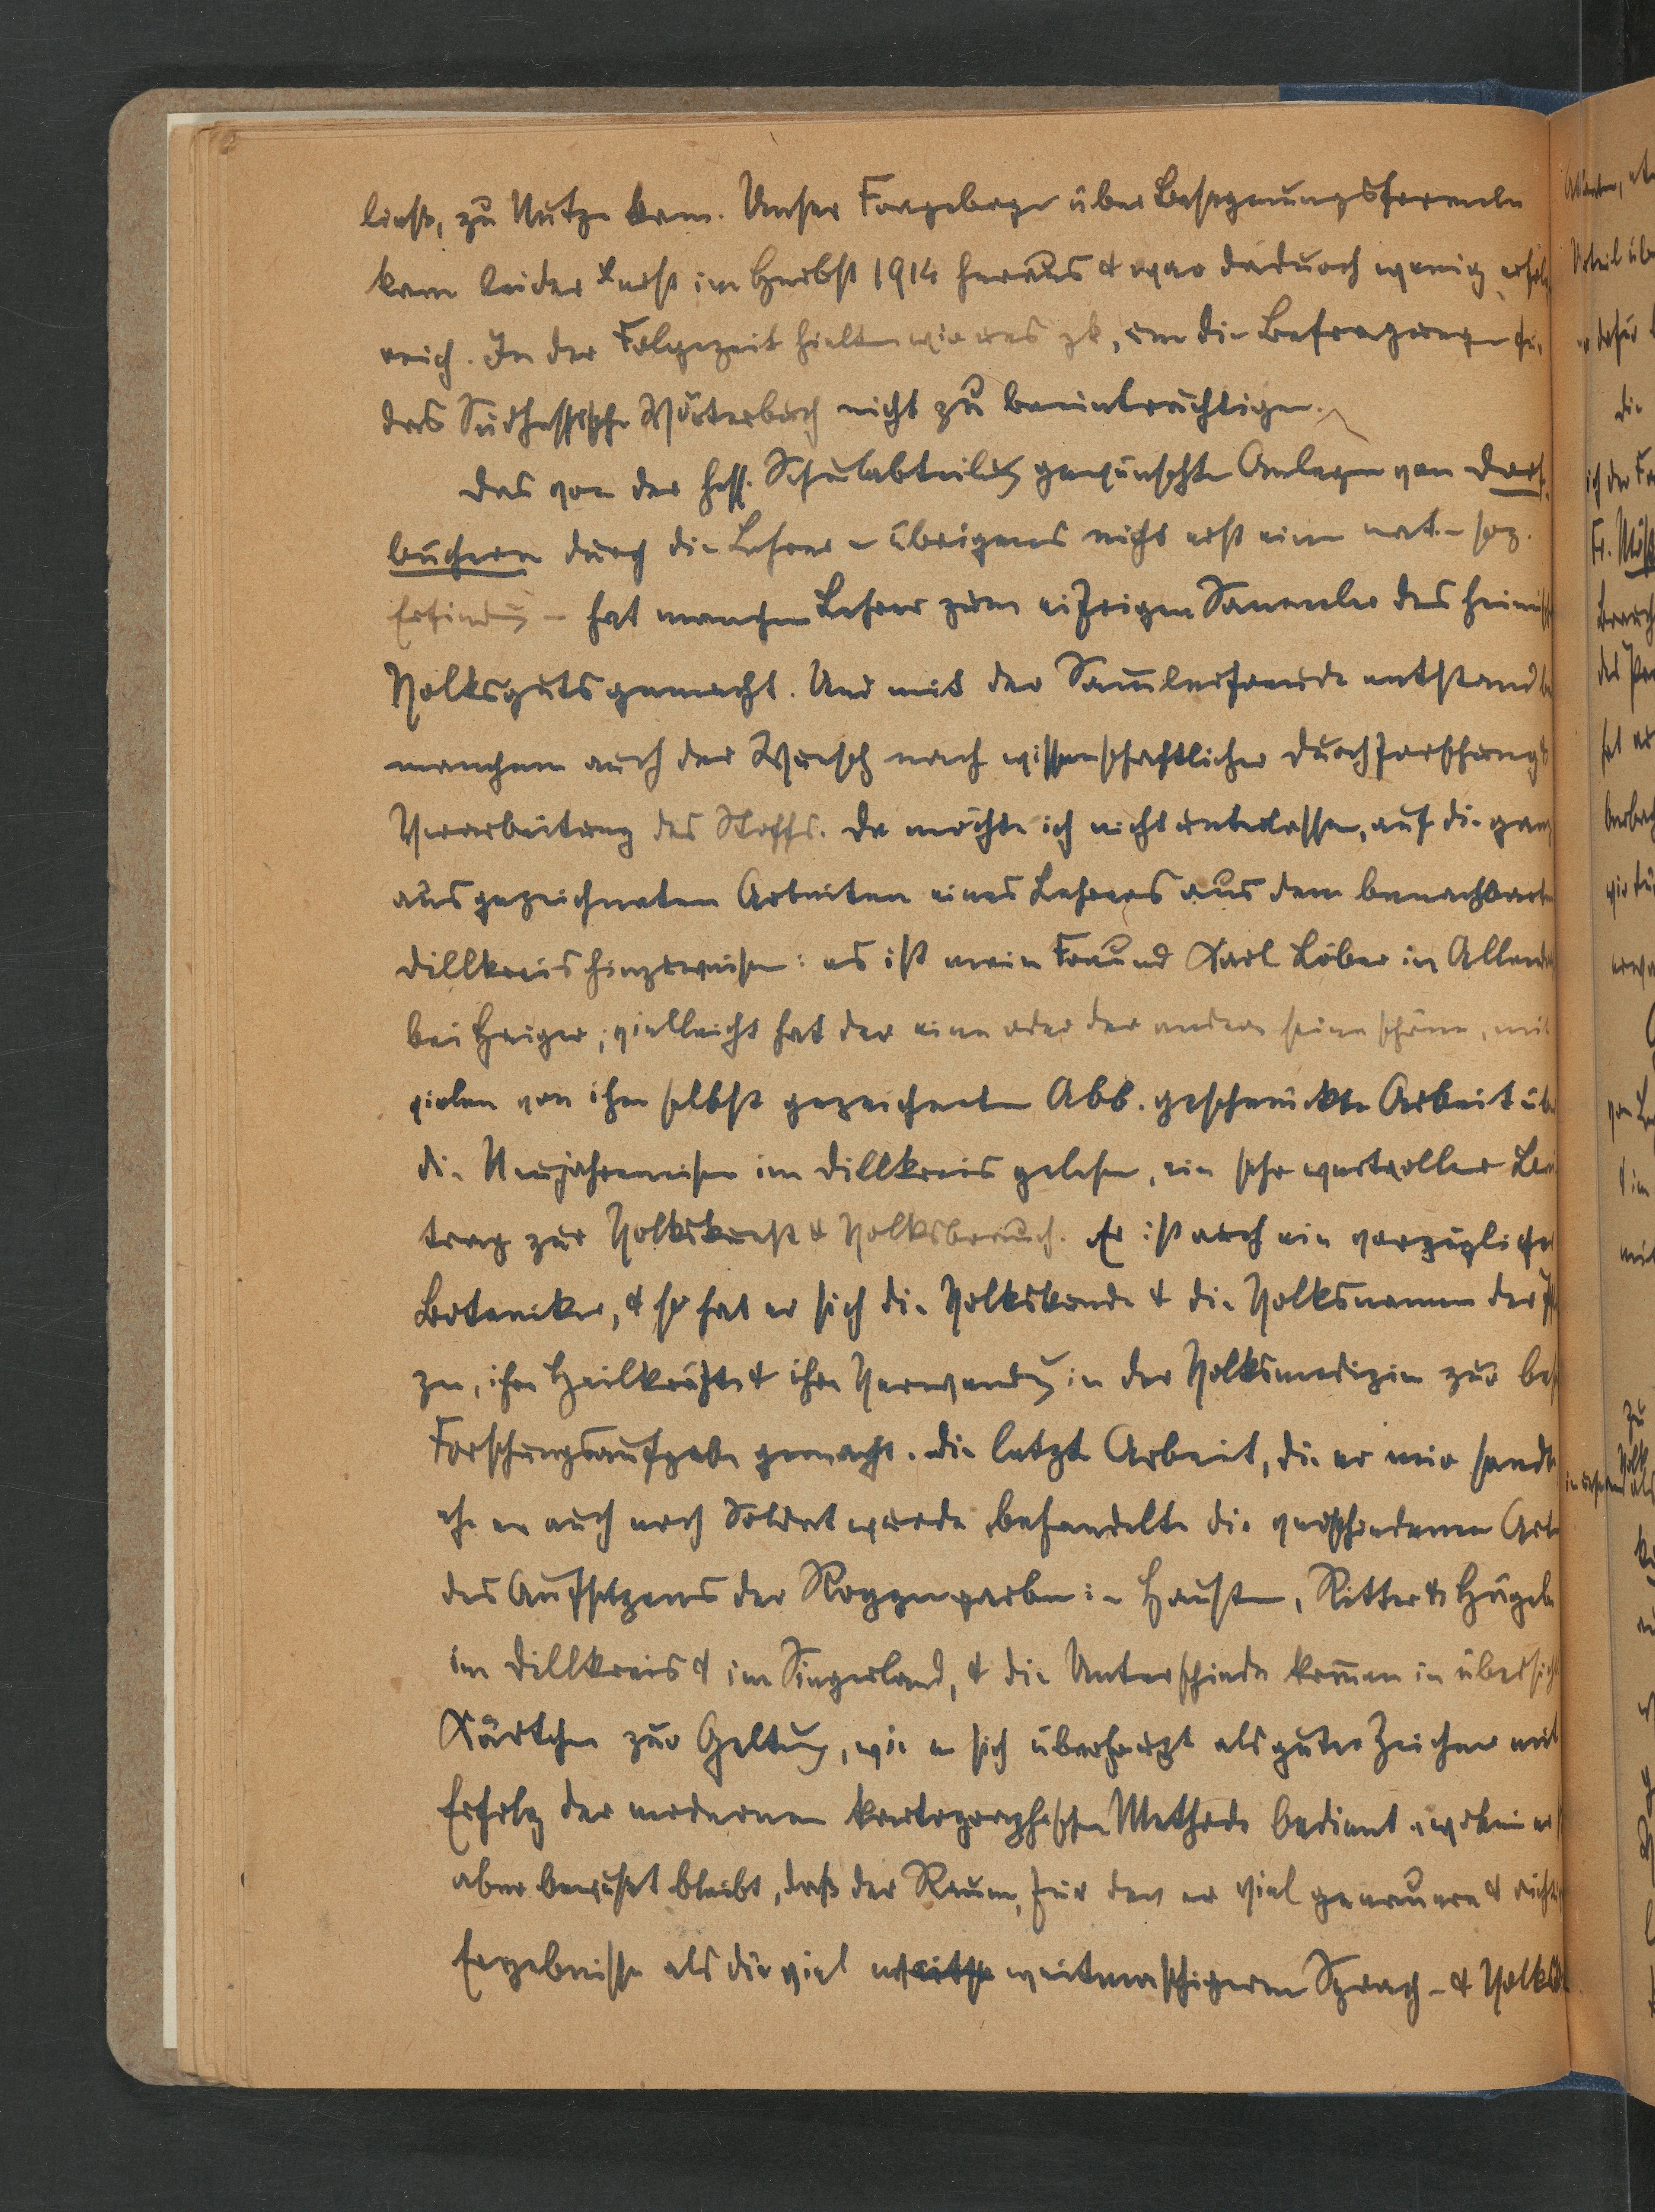 ließ, zu Nutze kam. Unser Fragebogen über Besegnungsformeln
kam leider erst im Herbst 1914 heraus & war dadurch wenig erfolg
reich. In der Folgezeit hielten wir uns zk, um die Befragungen für
das Südhessische Wörterbuch nicht zu beeinträchtigen.
Das von der hess. Schulabteilung gewünschte Anlegen von Dorf-
büchern durch die Lehrer – übrigens nicht erst eine nat.-soz.
Erfindung – hat manchen Lehrer zum eifrigen Sammler des heimisch
Volksguts gemacht. Und mit der Sammlerfreude entstand bei
manchem auch der Wunsch nach wissenschaftlicher Durchforschung &
Verarbeitung des Stoffs. Da möchte ich nicht unterlassen, auf die ganz
ausgezeichneten Arbeiten eines Lehrers aus dem benachbarten
Dillkreis hinzuweisen: es ist mein Freund Karl Löber in Allend
bei Haiger; vielleicht hat der eine oder der andere seine schöne, mit
vielen von ihm selbst gezeichneten Abb. geschmückte Arbeit übe
die Neujahrmeisen im Dillkreis gelesen, ein sehr wertvoller Bei
trag zur Volkskunst & Volksbrauch. Er ist auch ein vorzügliche
Botaniker, & so hat er sich die Volkskunde & die Volksnamen der Pf
zen, ihre Heilkräfte & ihre Verwendung in der Volksmedizin zur bes
Forschungsaufgabe gemacht. Die letzte Arbeit, die er mir sandte
ehe er auch noch Soldat wurde, behandelte die verschiedenen Arte
des Aufsetzens der Roggengarben in Hausten, Ritter & Hügeln
im Dillkreis & im Siegerland, & die Unterschiede kommen in übersicht
Kärtchen zur Geltung, wie er sich überhaupt als guter Zeichner mit
Erfolg der modernen kartographischen Methode bedient, wobei er s
aber bewußt bleibt, daß der Raum, für den er viel genauere & richtig
Ergebnisse als die viel weitmaschigeren Sprach- & Volks